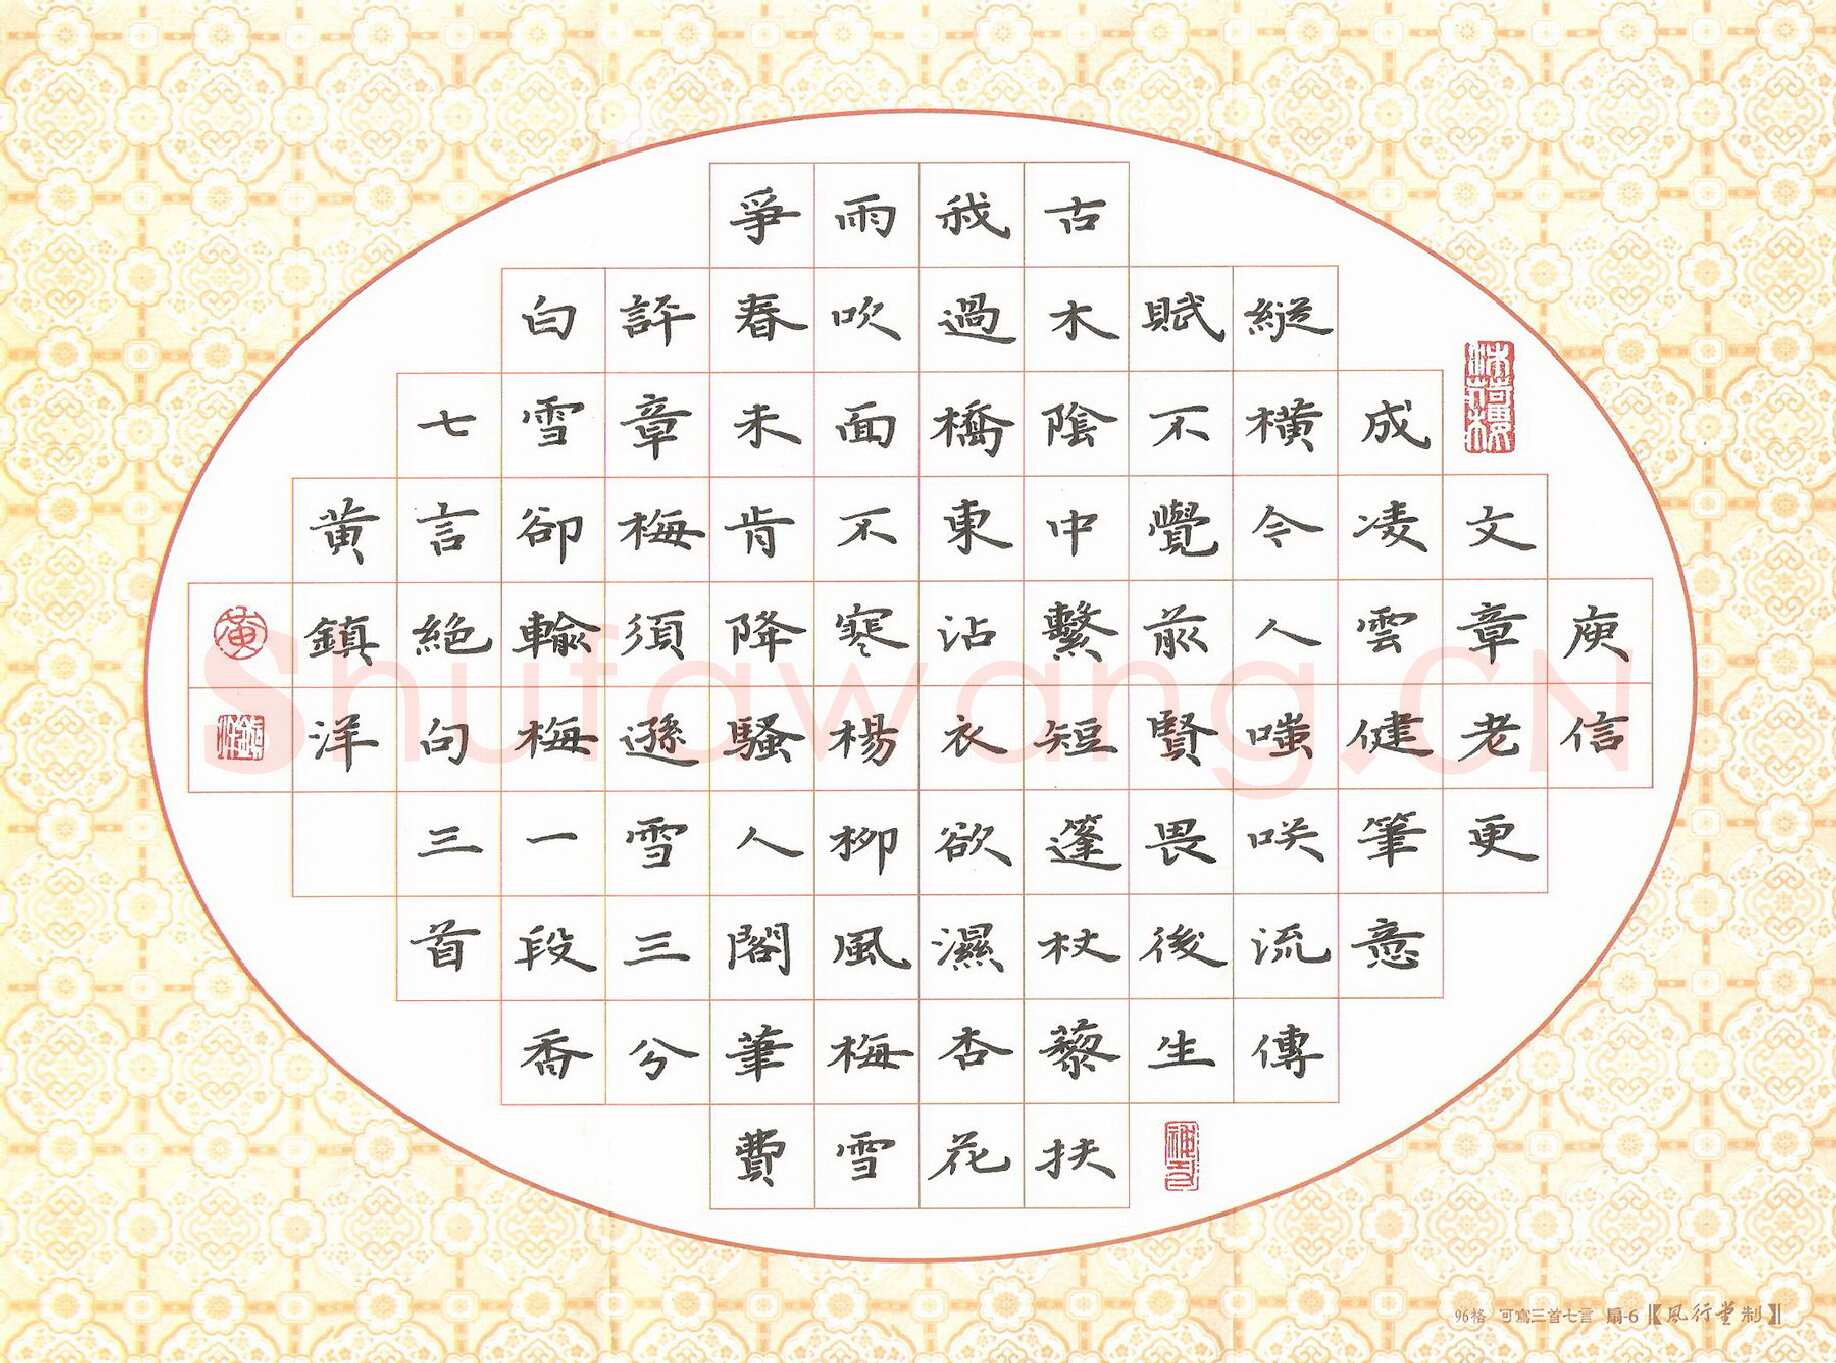 庾信
文章老更
成凌雲健筆意
縱橫令人嗤咲流傳
賦不覺前賢畏後生
古木陰中繫短篷杖藜扶
我過橋東沾衣欲濕杏花
雨吹面不寒楊柳風梅雪
爭春未肯降騷人閣筆費
評章梅須遜雪三分
白雪卻輸梅一段香
七言絕句三首
黄鎮洋
黄
鎮洋
Shufawang.CN
96格 可寫三首七言 扇-6【風行堂制】